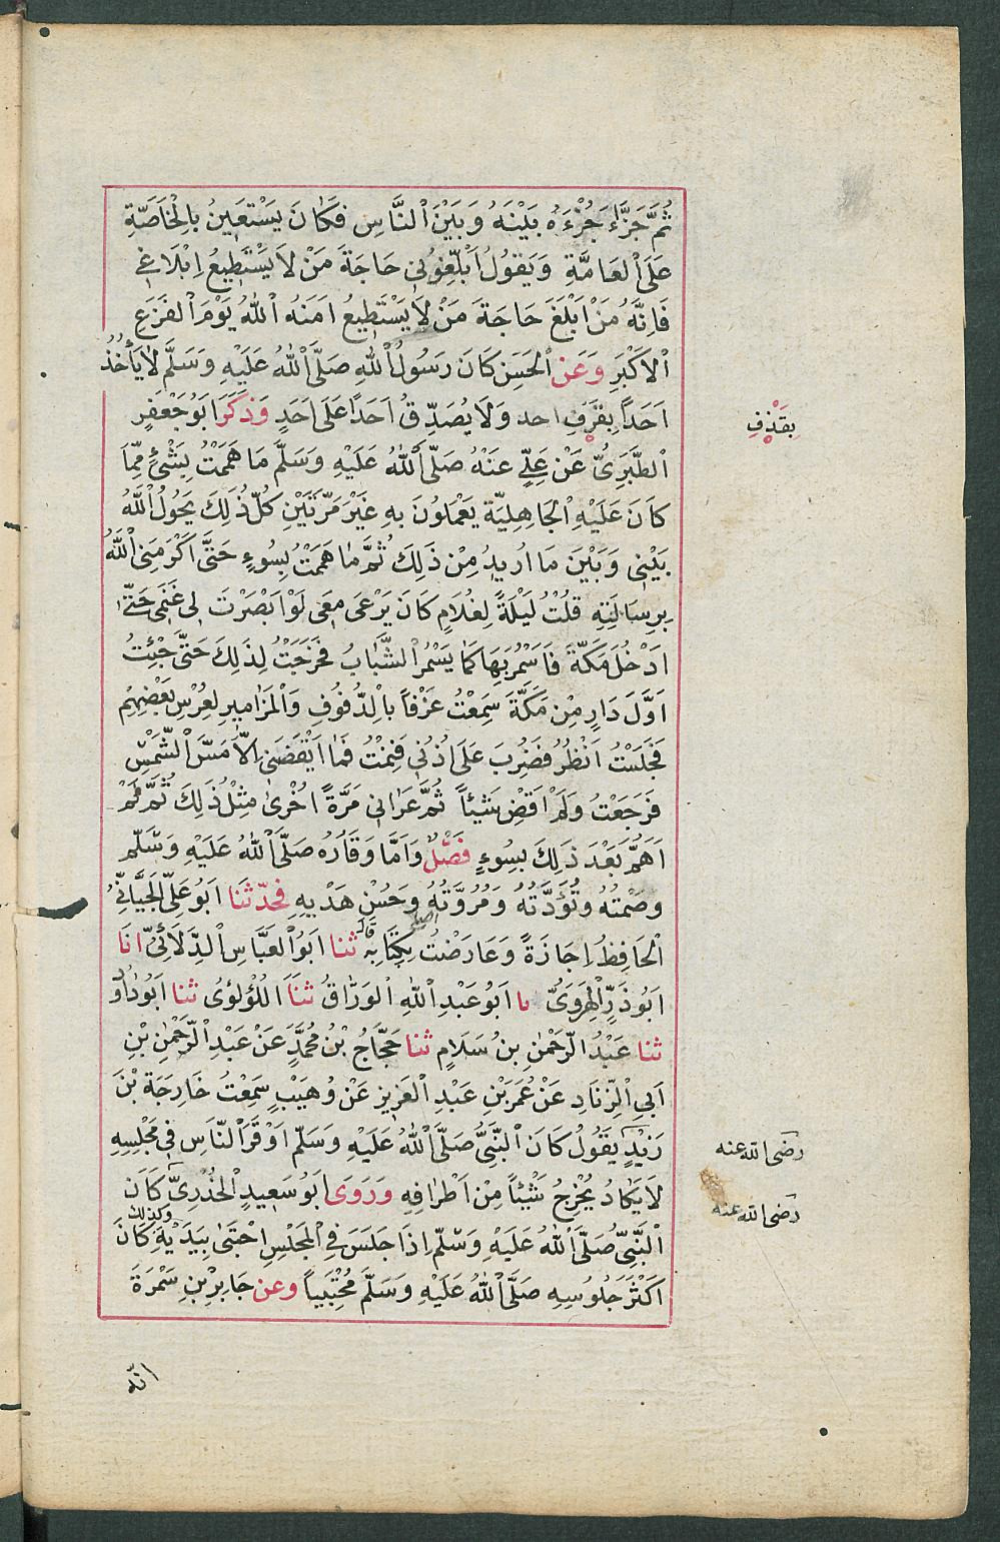 ثُمَّ جَزَّءَ جُزْءَهُ بَيْنَهُ وَبَيْنَ النَّاسِ فَكَانَ يَسْتَعِينُ بِالْخَاصَّةِ
عَلَى الْعَامَّةِ وَيَقُولُ اَبْلِغُونِى حَاجَةَ مَنْ لَا يَسْتَطِيعُ اِبْلَاغِى
فَاِنَّهُ مَنْ اَبْلَغَ حَاجَةَ مَنْ لَا يَسْتَطِيعُ امَنَهُ اللّٰهُ يَوْمَ الْفَزَعِ
الْاَكْبَرِ وَعَنِ الْحَسَنِ كَانَ رَسُولُ اللّٰهِ صَلَّى اللّٰهُ عَلَيْهِ وَسَلَّمَ لَا يَأْخُذُ
اَحَدًا بِقَرَفِ احد وَلَا يُصَدِّقُ اَحَدًا عَلَى اَحَدٍ وَذَكَرَ اَبُو جَعْفَرٍ
بِقَذْفِ
الطَّبَرِىُّ عَنْ عَلِىٍّ عَنْهُ صَلَّى اللّٰهُ عَلَيْهِ وَسَلَّمَ مَا هَمَمْتُ بِشَىْءٍ مِمَّا
كَانَ عَلَيْهِ الْجَاهِلِيَّة يَعْمَلُونَ بِهِ غَيْرَ مَرَّتَيْنِ كُلُّ ذٰلِكَ يَحُولُ اللّٰهُ
بَيْنِى وَبَيْنَ مَا اُرِيدُ مِنْ ذَلِكَ ثُمَّ مَا هَمَمْتُ بِسُوءٍ حَتَّى اَكْرَمَنِى اللّٰهُ
بِرِسَالَتِهِ قُلْتُ لَيْلَةً لِغُلَامٍ كَانَ يَرْعَى مَعِى لَوْ اَبْصَرْتَ لِى غَنَمِى حَتّٰى
اَدْخُلَ مَكَّةَ فَاَسْمُرَ بِهَا كَمَا يَسْمُرُ الشَّبَابُ فَخَرَجْتُ لِذَلِكَ حَتَّى جِئْتُ
اَوَّلَ دَارٍ مِنْ مَكَّةَ سَمِعْتُ عَزْفًا بِالدُّفُوفِ وَالْمَزَامِيرِ لِعُرْسِ بَعْضِهِمْ
فَجَلَسْتُ اَنْظُرُ فَضُرِبَ عَلَى اُذُنِى فَنِمْتُ فَمَا اَيْقَظَنِى اِلَّا مَسُّ الشَّمْسِ
فَرَجَعْتُ وَلَمْ اَقْضِ شَيْئًا ثُمَّ عَرَانِى مَرَّةً اُخْرٰى مِثْلُ ذَلِكَ ثُمَّ لَمْ
اَهُمَّ بَعْدَ ذَلِكَ بِسُوءٍ فَصْلٌ وَاَمَّا وَقَارُهُ صَلَّى اللّٰهُ عَلَيْهِ وَسَلَّمَ
وَصَمْتُهُ وَتُؤَدَتُهُ وَمُرُوَّتُهُ وَحُسْنُ هَدْيِهِ فَحَدَّثَنَا اَبُو عَلِىٍّ الْجَيَّانِىُّ
الْحَافِظُ اِجَازَةً وَعَارَضْتُ بِكِتَابِهِ قال ثنا اَبُو الْعَبَّاسِ الدِّلَائِىُّ انَا
اَبُو ذَرٍّ الْهَرَوِىُّ نا اَبُو عَبْدِ اللّٰهِ الْوَرَّاقُ ثنا اللُّؤْلُؤِىُّ ثنا اَبُو دَاوُد
ثنا عَبْدُ الرَّحْمٰنِ بنُ سَلَامٍ ثنا حَجَّاجُ بْنُ مُحَمَّدٍ عَنْ عَبْدِ الرَّحْمٰنِ بْنِ
اَبِى الزِّنَادِ عَنْ عُمَرَ بْنِ عَبْدِ الْعَزِيزِ عَنْ وُهَيْبٍ سَمِعْتُ خَارِجَةَ بْنَ
زَيْدٍ يَقُولُ كَانَ النَّبِىُّ صَلَّى اللّٰهُ عَلَيْهِ وَسَلَّمَ اَوْقَرَ النَّاسِ فِى مَجْلِسِهِ
رضى الله عنه
لَا يَكَادُ يُخْرِجُ شَيْئًا مِنْ اَطْرَافِهِ وَرَوَى اَبُو سَعِيدٍ الْخُدْرِىُّ كَانَ
رضى الله عنه
النَّبِىُّ صَلَّى اللّٰهُ عَلَيْهِ وَسَلَّمَ اِذَا جَلَسَ فِى الْمَجْلِسِ احْتَبٰى بِيَدَيْهِ وكذلك كَانَ
اَكْثَرُ جُلُوسِهِ صَلَّى اللّٰهُ عَلَيْهِ وَسَلَّمَ مُحْتَبِيًا وعن جَابِرِ بْنِ سَمُرَةَ
انّه